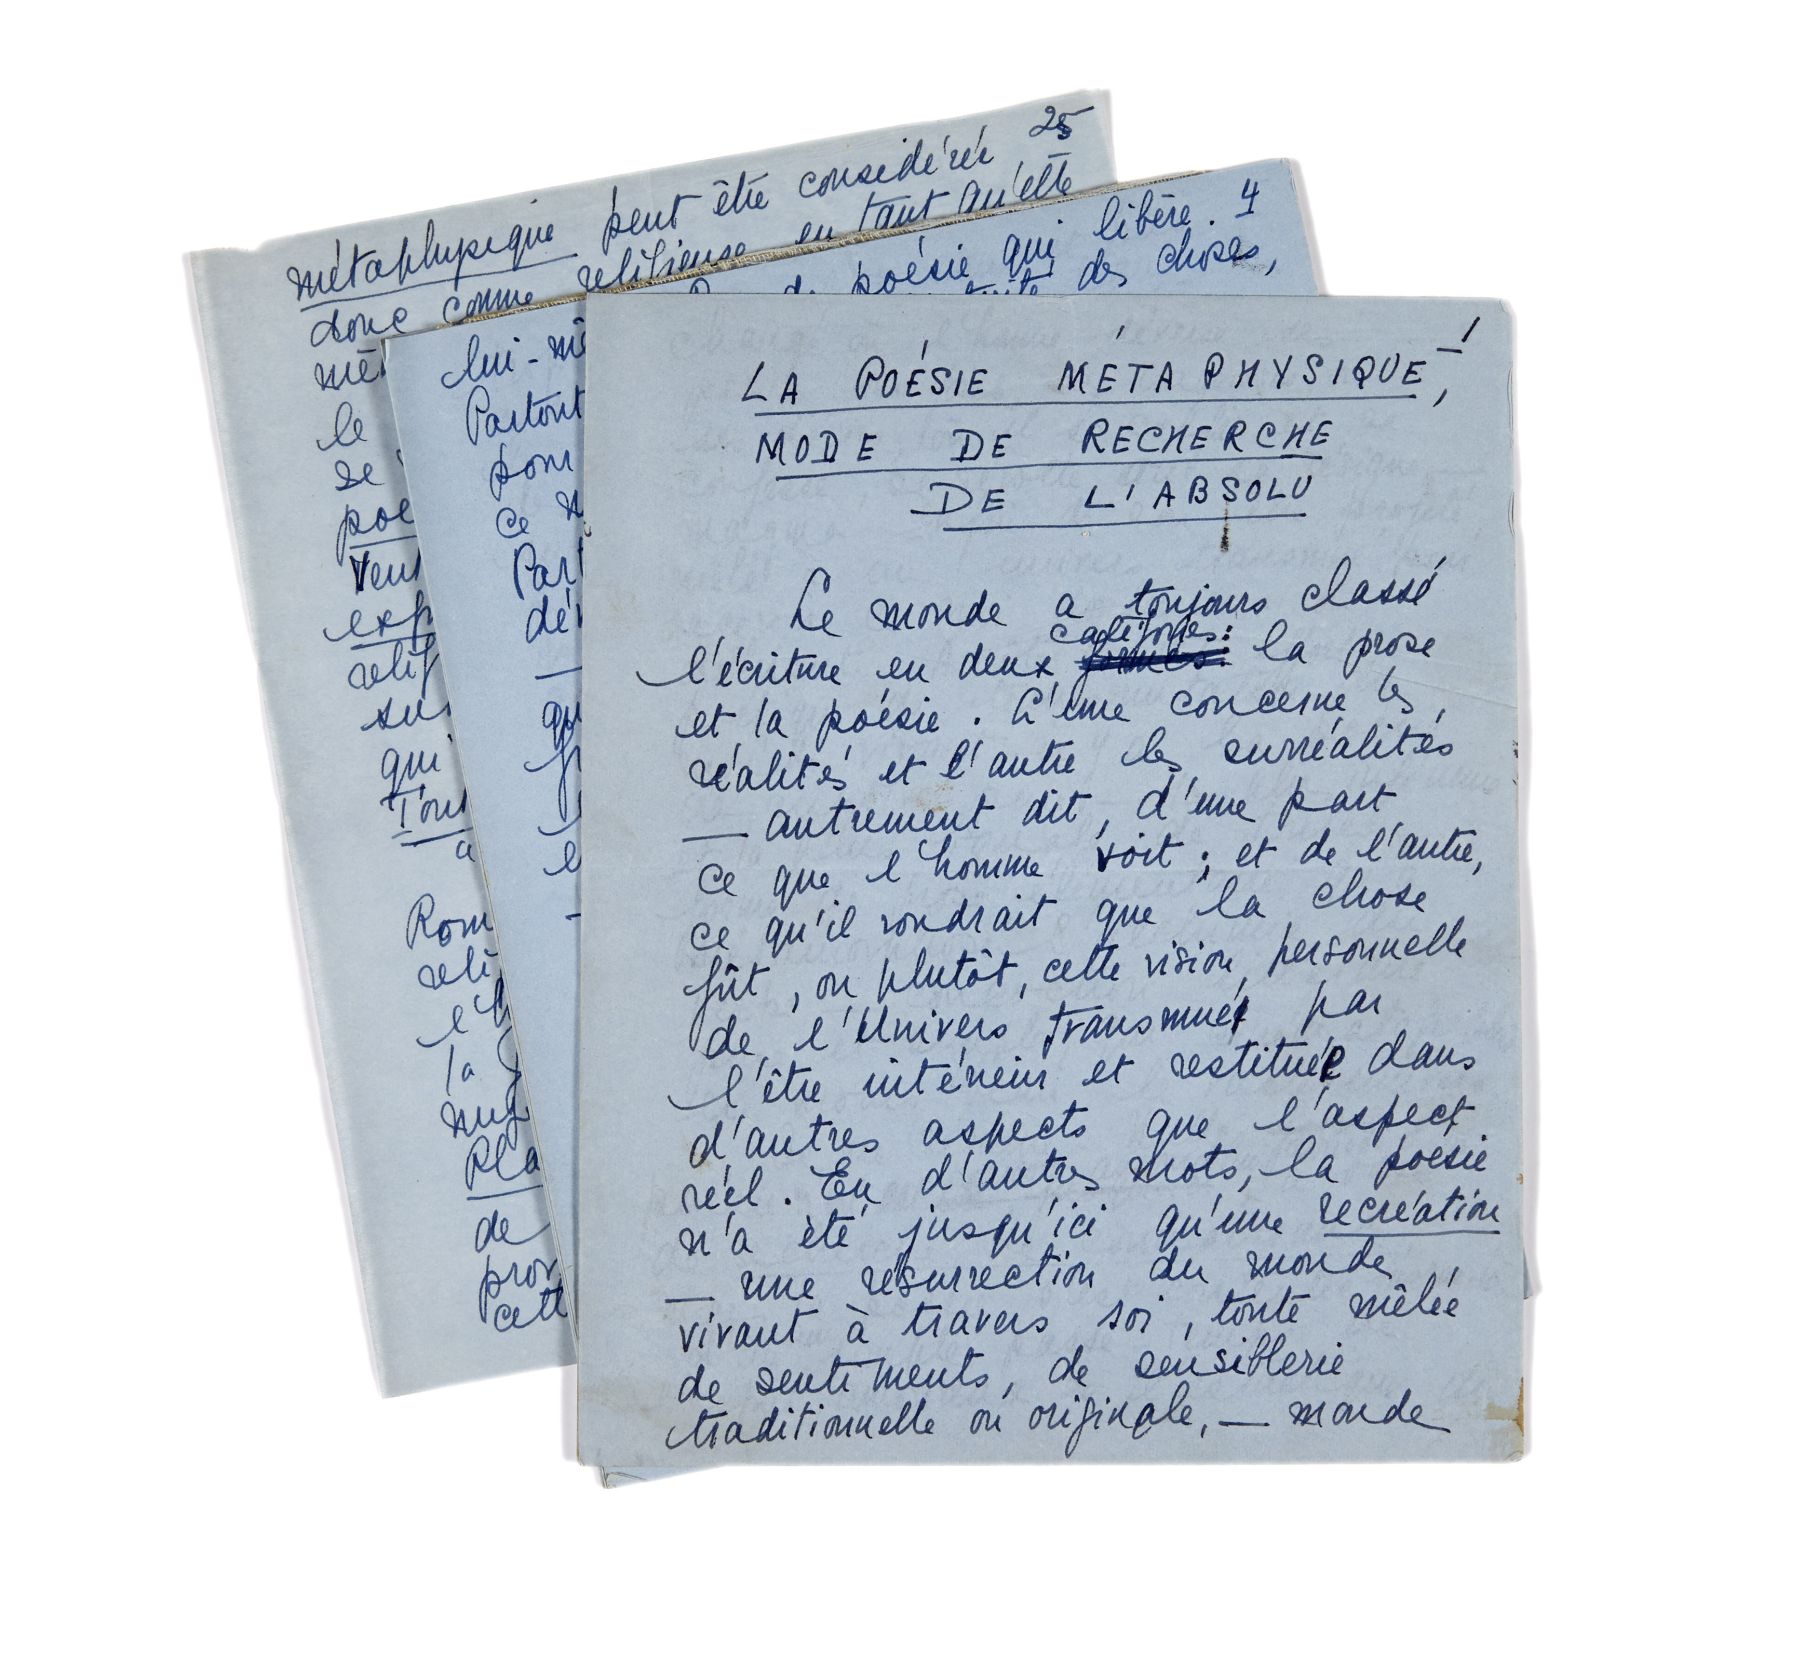 25
métaphysique peut être considérée
donc comme religieuse en tant qu'elle
le
se
Rom
la
de
cett
4
de poésie qui libère.
des choses,
lui-mê
Partout
pour
ce
Part
1
LA POÉSIE MÉTAPHYSIQUE,
MODE DE RECHERCHE
DE L'ABSOLU
Le monde a toujours classé
catégories:
l'écriture en deux formes: la prose
et la poésie. L'une concerne les
réalités et l'autre les surréalités
— autrement dit, d'une part
ce que l'homme voit; et de l'autre,
ce qu'il voudrait que la chose
fût, ou plutôt, cette vision personnelle
de l'Univers transmuée par
l'être intérieur et restituée dans
d'autres aspects que l'aspect
réel. En d'autres mots, la poésie
n'a été jusqu'ici qu'une recréation
— une résurrection du monde
vivant à travers soi, toute mêlée
de sentiments, de sensiblerie
traditionnelle ou originale, — monde